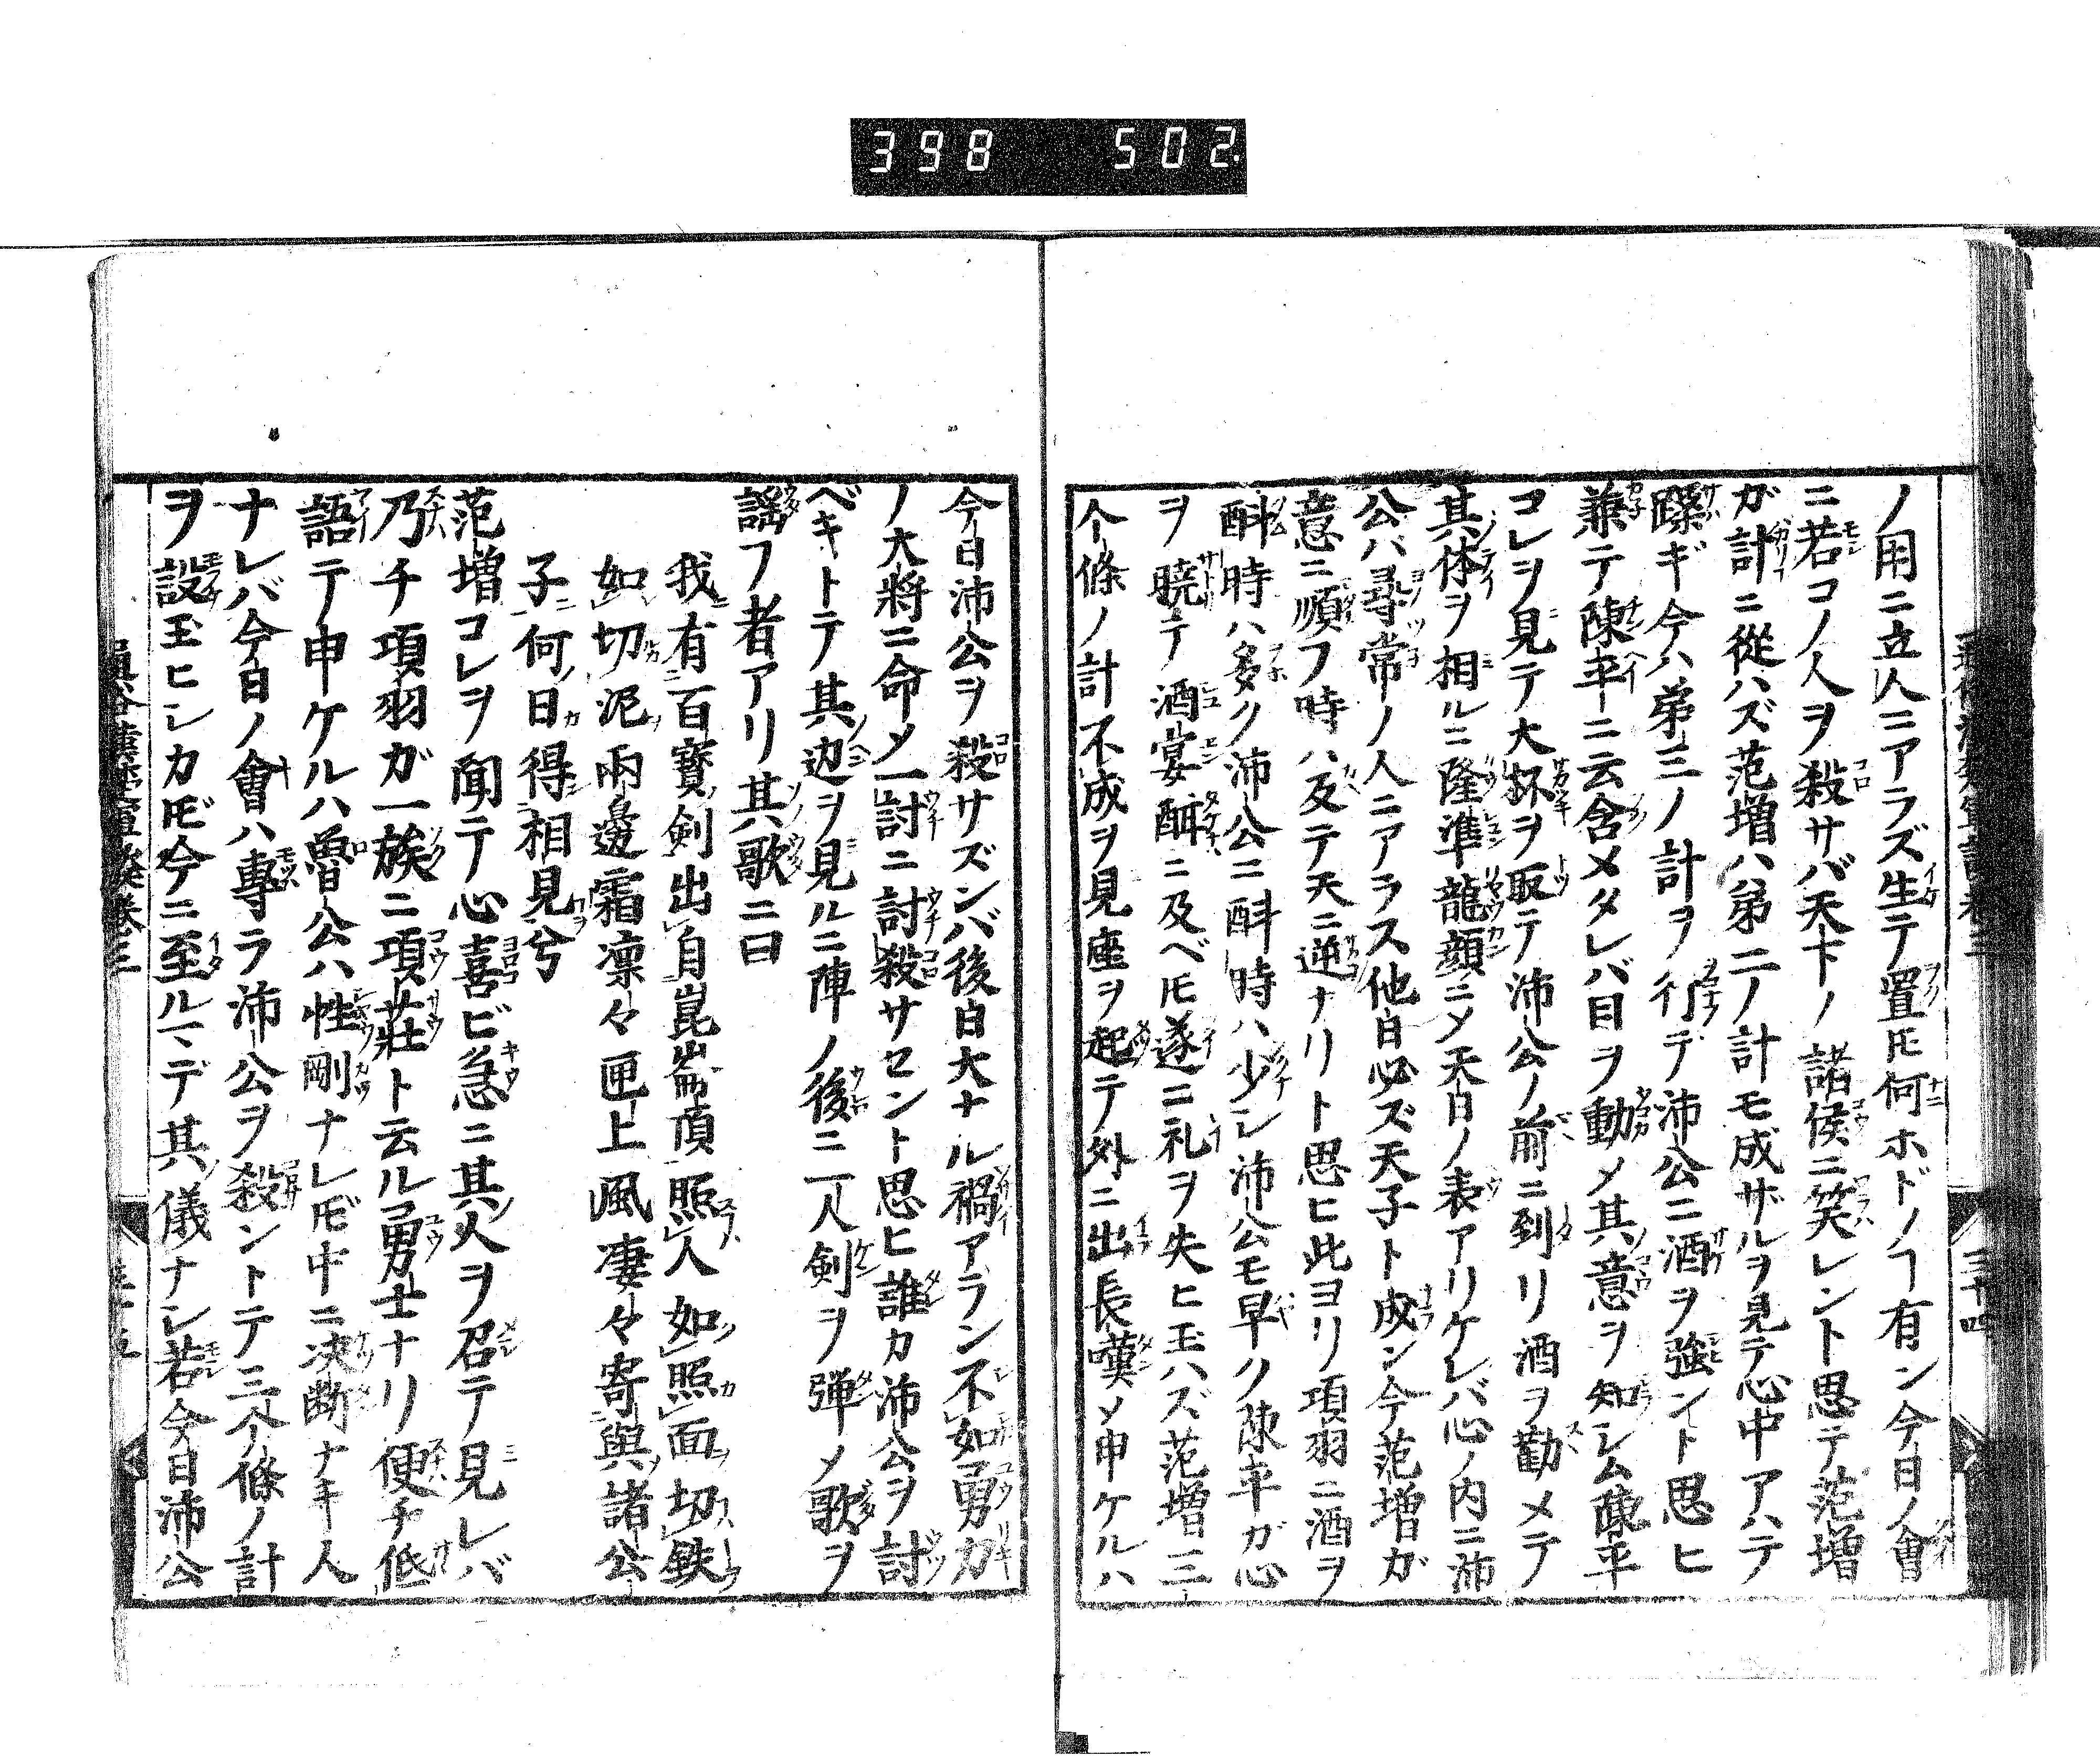 398 502
ノ用ニ立人ニアラズ生テ置𪜈何ホドノヿ有ン今日ノ會
ニ若コノ人ヲ殺サバ天下ノ諸侯ニ笑レント思テ范増
ガ計ニ從ハズ范増ハ第二ノ計モ成ザルヲ見テ心中アハテ
躁ギ今ハ第三ノ計ヲ行テ沛公ニ酒ヲ強ント思ヒ
兼テ陳平ニ云含メタレバ目ヲ動メ其意ヲ知シム陳平
コレヲ見テ大杯ヲ取テ沛公ノ前ニ到リ酒ヲ勸メテ
其体ヲ相ルニ隆準龍顔ニメ天日ノ表アリケレバ心ノ内ニ沛
公ハ尋常ノ人ニアラス他日必ズ天子ト成ン今范増ガ
意ニ順フ時ハ反テ天ニ逆ナリト思ヒ此ヨリ項羽ニ酒ヲ
斟時ハ多ク沛公ニ斟時ハ少シ沛公モ早ク陳平ガ心
ヲ曉テ酒宴酣ニ及ベ𪜈遂ニ礼ヲ失ヒ玉ハズ范増三
个條ノ計不成ヲ見座ヲ起テ外ニ出長嘆メ申ケルハ
三十四
今日沛公ヲ殺サズンバ後日大ナル禍アラン不如勇力
ノ大將ニ命メ一討ニ討殺サセント思ヒ誰カ沛公ヲ討
ベキトテ其辺ヲ見ルニ陣ノ後ニ一人剣ヲ弾メ歌ヲ
謡フ者アリ其歌ニ曰
我有百寳剣出自崑崙頂照人如照面切鉄
如切泥兩邊霜凛々匣上風凄々寄與諸公
子何日得相見兮
范増コレヲ聞テ心喜ビ急ニ其人ヲ召テ見レバ
乃チ項羽ガ一族ニ項莊ト云ル勇士ナリ便チ低
語テ申ケルハ魯公ハ性剛ナレ𪜈中ニ决断ナキ人
ナレバ今日ノ會ハ專ラ沛公ヲ殺ントテ三个條ノ計
ヲ設玉ヒシカ𪜈今ニ至ルマデ其儀ナシ若今日沛公